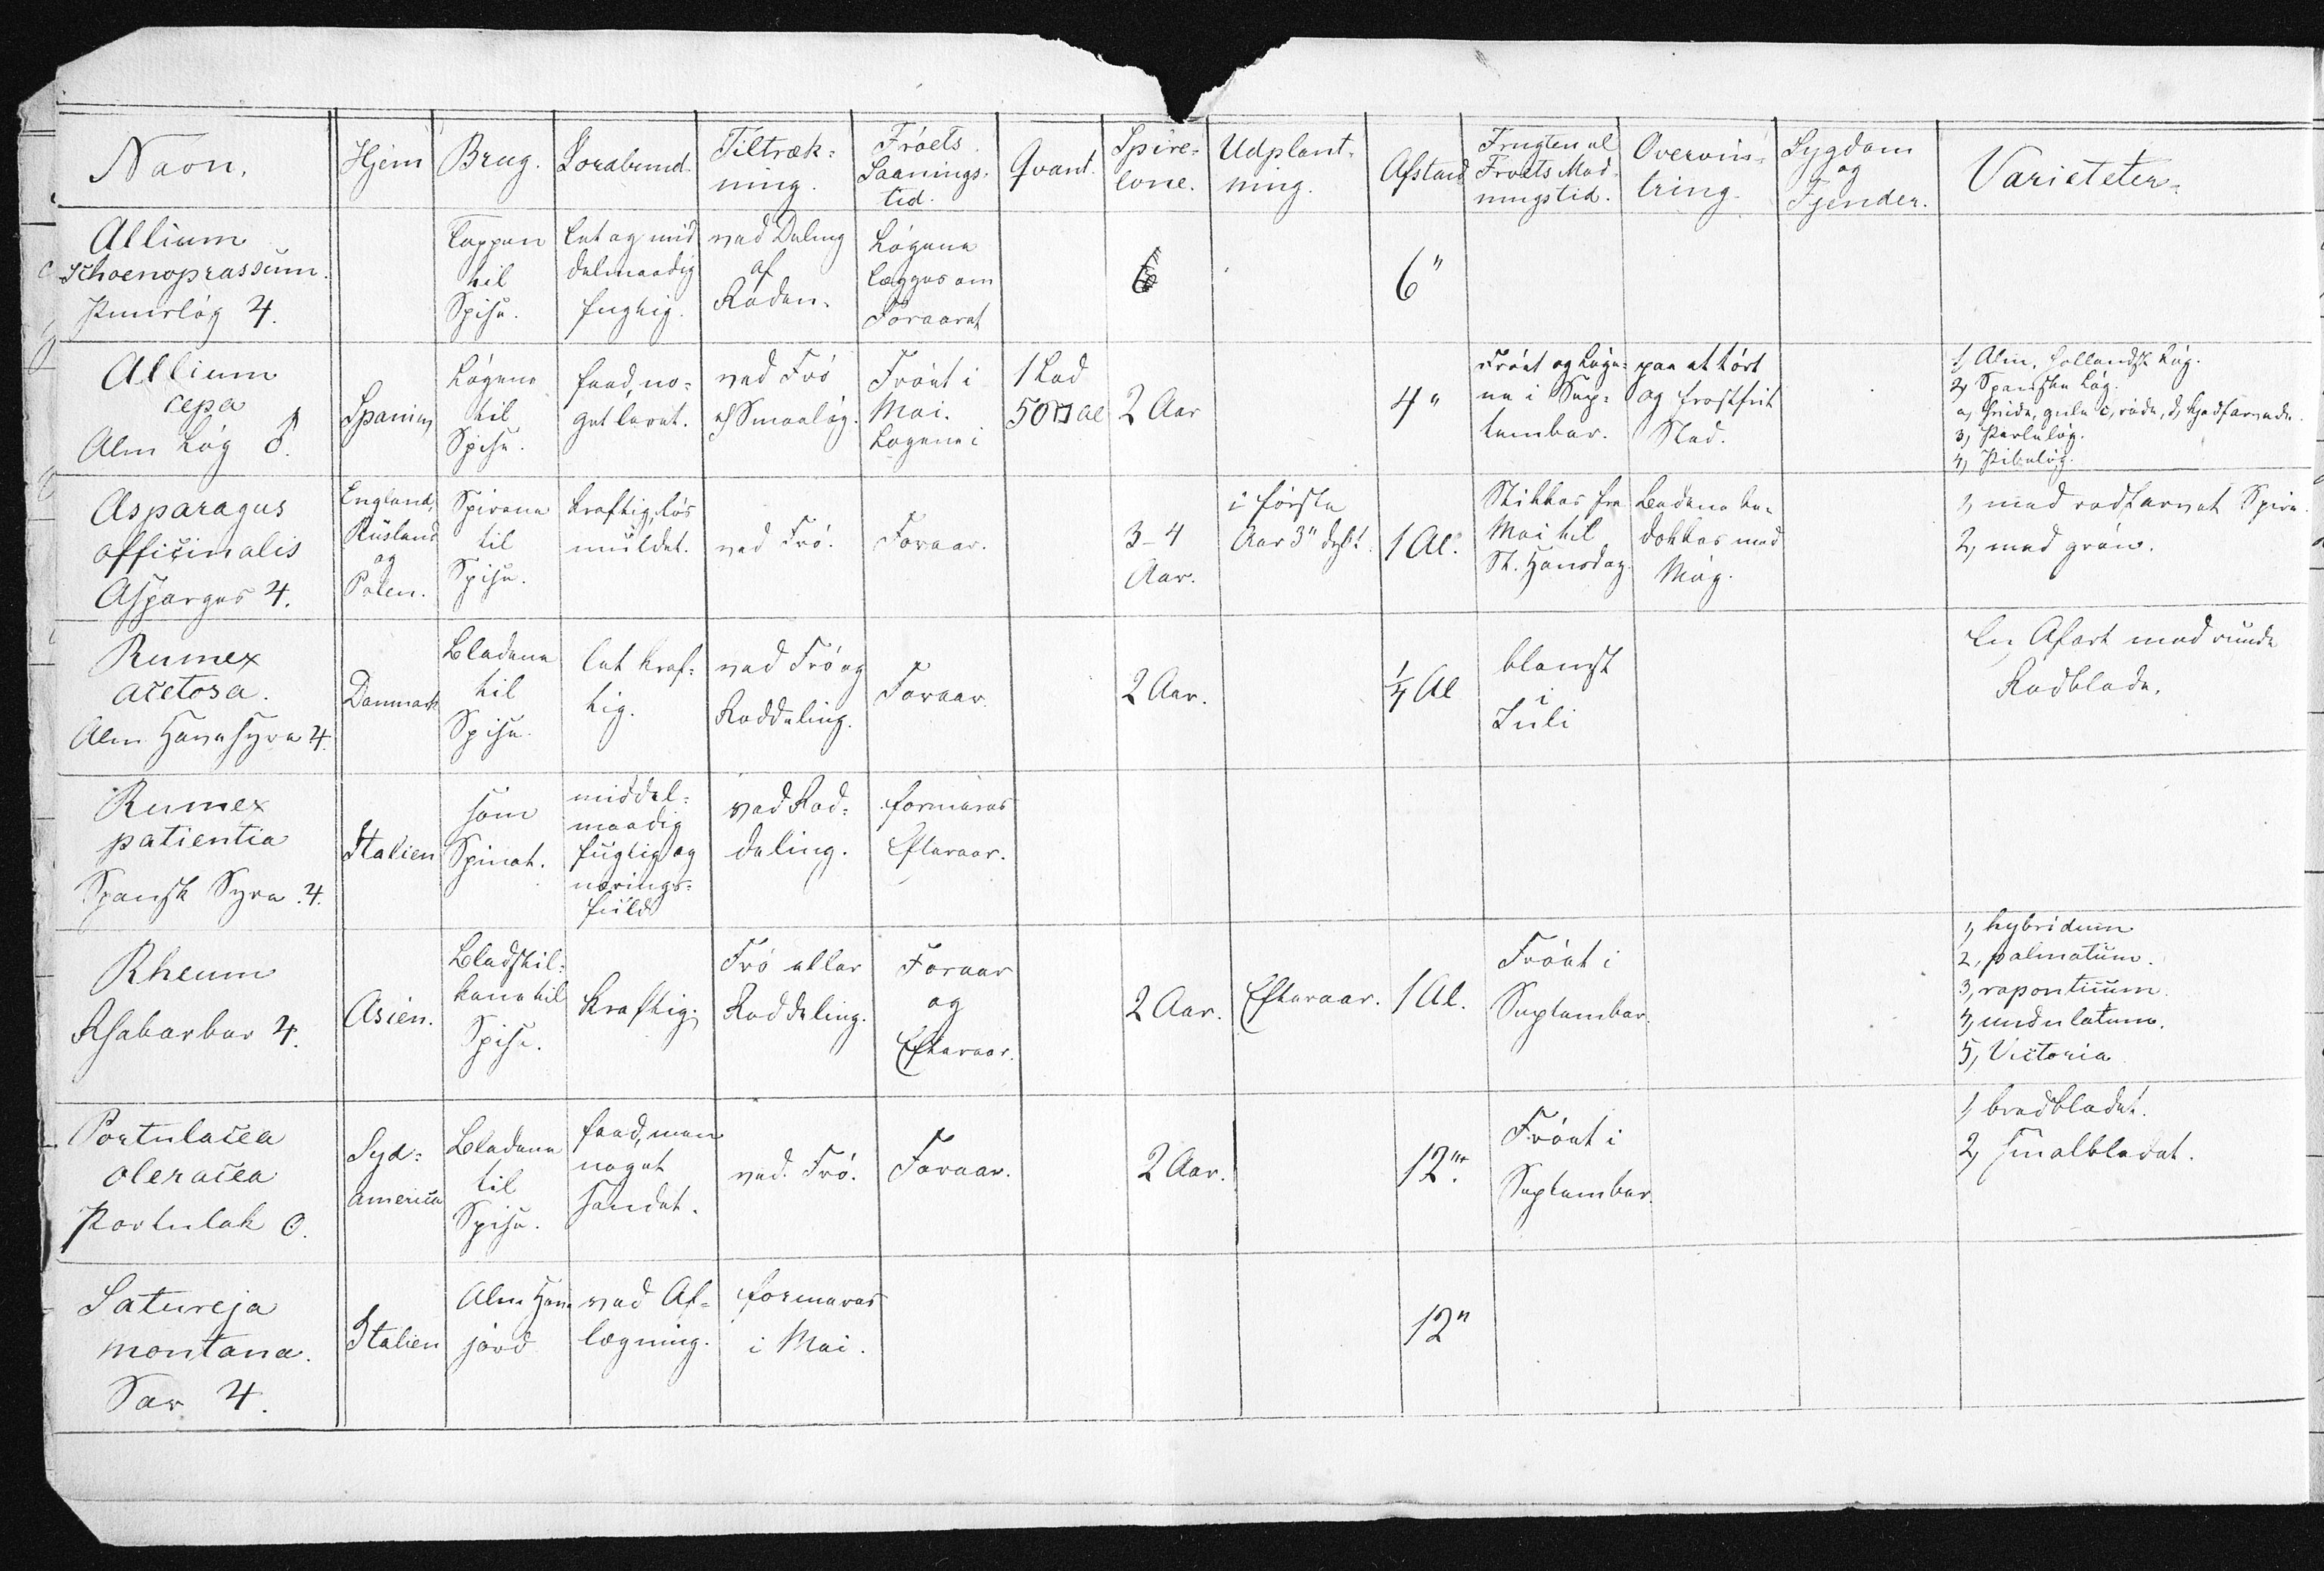 Navn.
Hjem
Brug.
Jordbund.
Tiltræk-
ning.
Frøets
Saanings-
tid.
Qvant.
Spire-
evne.
Udplant-
ning.
Afstand
Frugten el
Frøets Mod-
ningstid.
Overvin-
tring.
Sygdom
og
Fjender.
Varieteter.
Allium
Schoenoprassum.
Purrløg ♃.
Toppen
til
Spise.
let og mid
delmaadig
fugtig.
ved Deling
af
Roden.
Løgene
lægges om
Foraaret
6
6"
Allium
cepa
Alm Løg ♂.
Spanien
Løgene
til
Spise.
feed, no-
get leret.
ved Frø
el Smaaløg.
Frøet i
Mai.
Løgene i
1 Lod
50 □ Al
2 Aar
4"
Frøet og Løge-
ne i Sep-
tember.
paa et tørt
og frostfrit
Sted.
1, Alm. hollandsk Løg.
2, Spanske Løg.
a, hvide, gule c, røde, d, kjødfarvede.
3, Perleløg.
4, Pibeløg.
Asparagus
officinalis
Asparges ♃.
England,
Rusland
og
Polen.
Spirene
til
Spise.
kraftig, løs
muldet.
ved Frø.
Foraar.
3-4
Aar.
i første
Aar 3" dybt.
1 Al.
Stikkes fra
Mai til
St. Hansdag.
Bedene be-
dækkes med
Møg.
1, med rødfarvet Spire.
2, med grøn.
Rumex
acetosa.
Alm Havesyre ♃.
Danmark
Bladene
til
Spise.
let kraf-
tig.
ved Frø og
Roddeling.
Foraar.
2 Aar.
¼ Al
blomst
i
Juli
En Afart med runde
Rodblade.
Rumex
patientia
Spansk Syre ♃.
Italien
som
Spinat.
middel-
maadig
fugtig og
nærings-
fuld
ved Rod-
deling.
formeres
Efteraar.
Rheum
Rhabarber ♃.
Asien.
Bladstil-
kene til
Spise.
kraftig.
Frø eller
Roddeling.
Foraar
og
Efteraar.
2 Aar.
Efteraar.
1 Al.
Frøet i
September.
1, hybridum
2, palmatum.
3, raponticum.
4, undulatum.
5, Victoria
Portulacea
oleracea
Portulak ʘ.
Syd-
america
Bladene
til
Spise.
feed, men
noget
sandet.
ved Frø.
Foraar.
2 Aar.
12".
Frøet i
September.
1, bredbladet.
2, smalbladet.
Satureja
montana.
Sar ♃.
Italien
Alm Have
jord
ved Af-
lægning.
formeres
i Mai.
12"